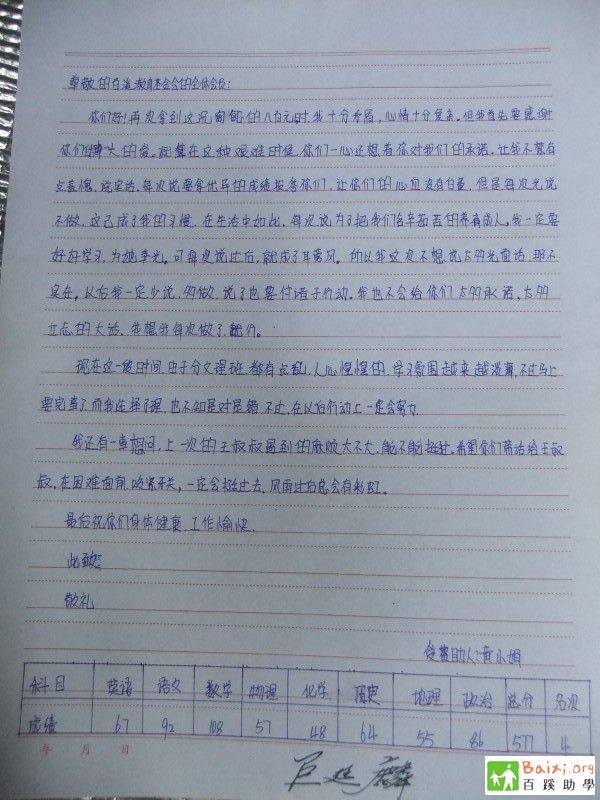 尊敬的百溪教育基金会的全体会员:
你们好!再次拿到这沉甸甸的八百元时,我十分矛盾,心情十分复杂。但我首先要感谢
你们博大的爱。在这种艰难时候,你们一心还想着你对我们的承诺,让我不禁有
点羞愧,说实话,每次说要拿优异的成绩报答你们,让你们的心血没有白费,但是每次光说
不做,这已成了我的习惯,在生活中如此,每次说为了把我们含辛茹苦的养育成人,我一定要
好好学习,为她争光,可每次说过后,就成了耳旁风。所以我这次不想说太多光面话,那不
实在。以后我一定少说,多做,说了也要付诸于行动。我也不会给你们太多承诺,太多
立志的大话,我想我每次做了就行。
现在这一段时间,由于分文理班,都有点乱,人心惶惶的,学习氛围越来越淡薄,不过马上
要完事了,而我选择了理,也不知是对是错,不过,在以后行动上一定会努力。
我还有一事想问,上一次的王叔叔遇到的麻烦大不大,能不能挺过。希望你们带话给王叔
叔,在困难面前,咬紧牙关,一定会挺过去,风雨过后总会有彩虹。
最后祝你们身体健康,工作愉快.
此致
敬礼
受资助人:黄小娟
科目 英语 语文 数学 物理 化学 历史 地理 政治 总分 名次
成绩 67 92 108 57 48 64 55 86 577 4
年 月 日
Baixi.org
百蹊助學